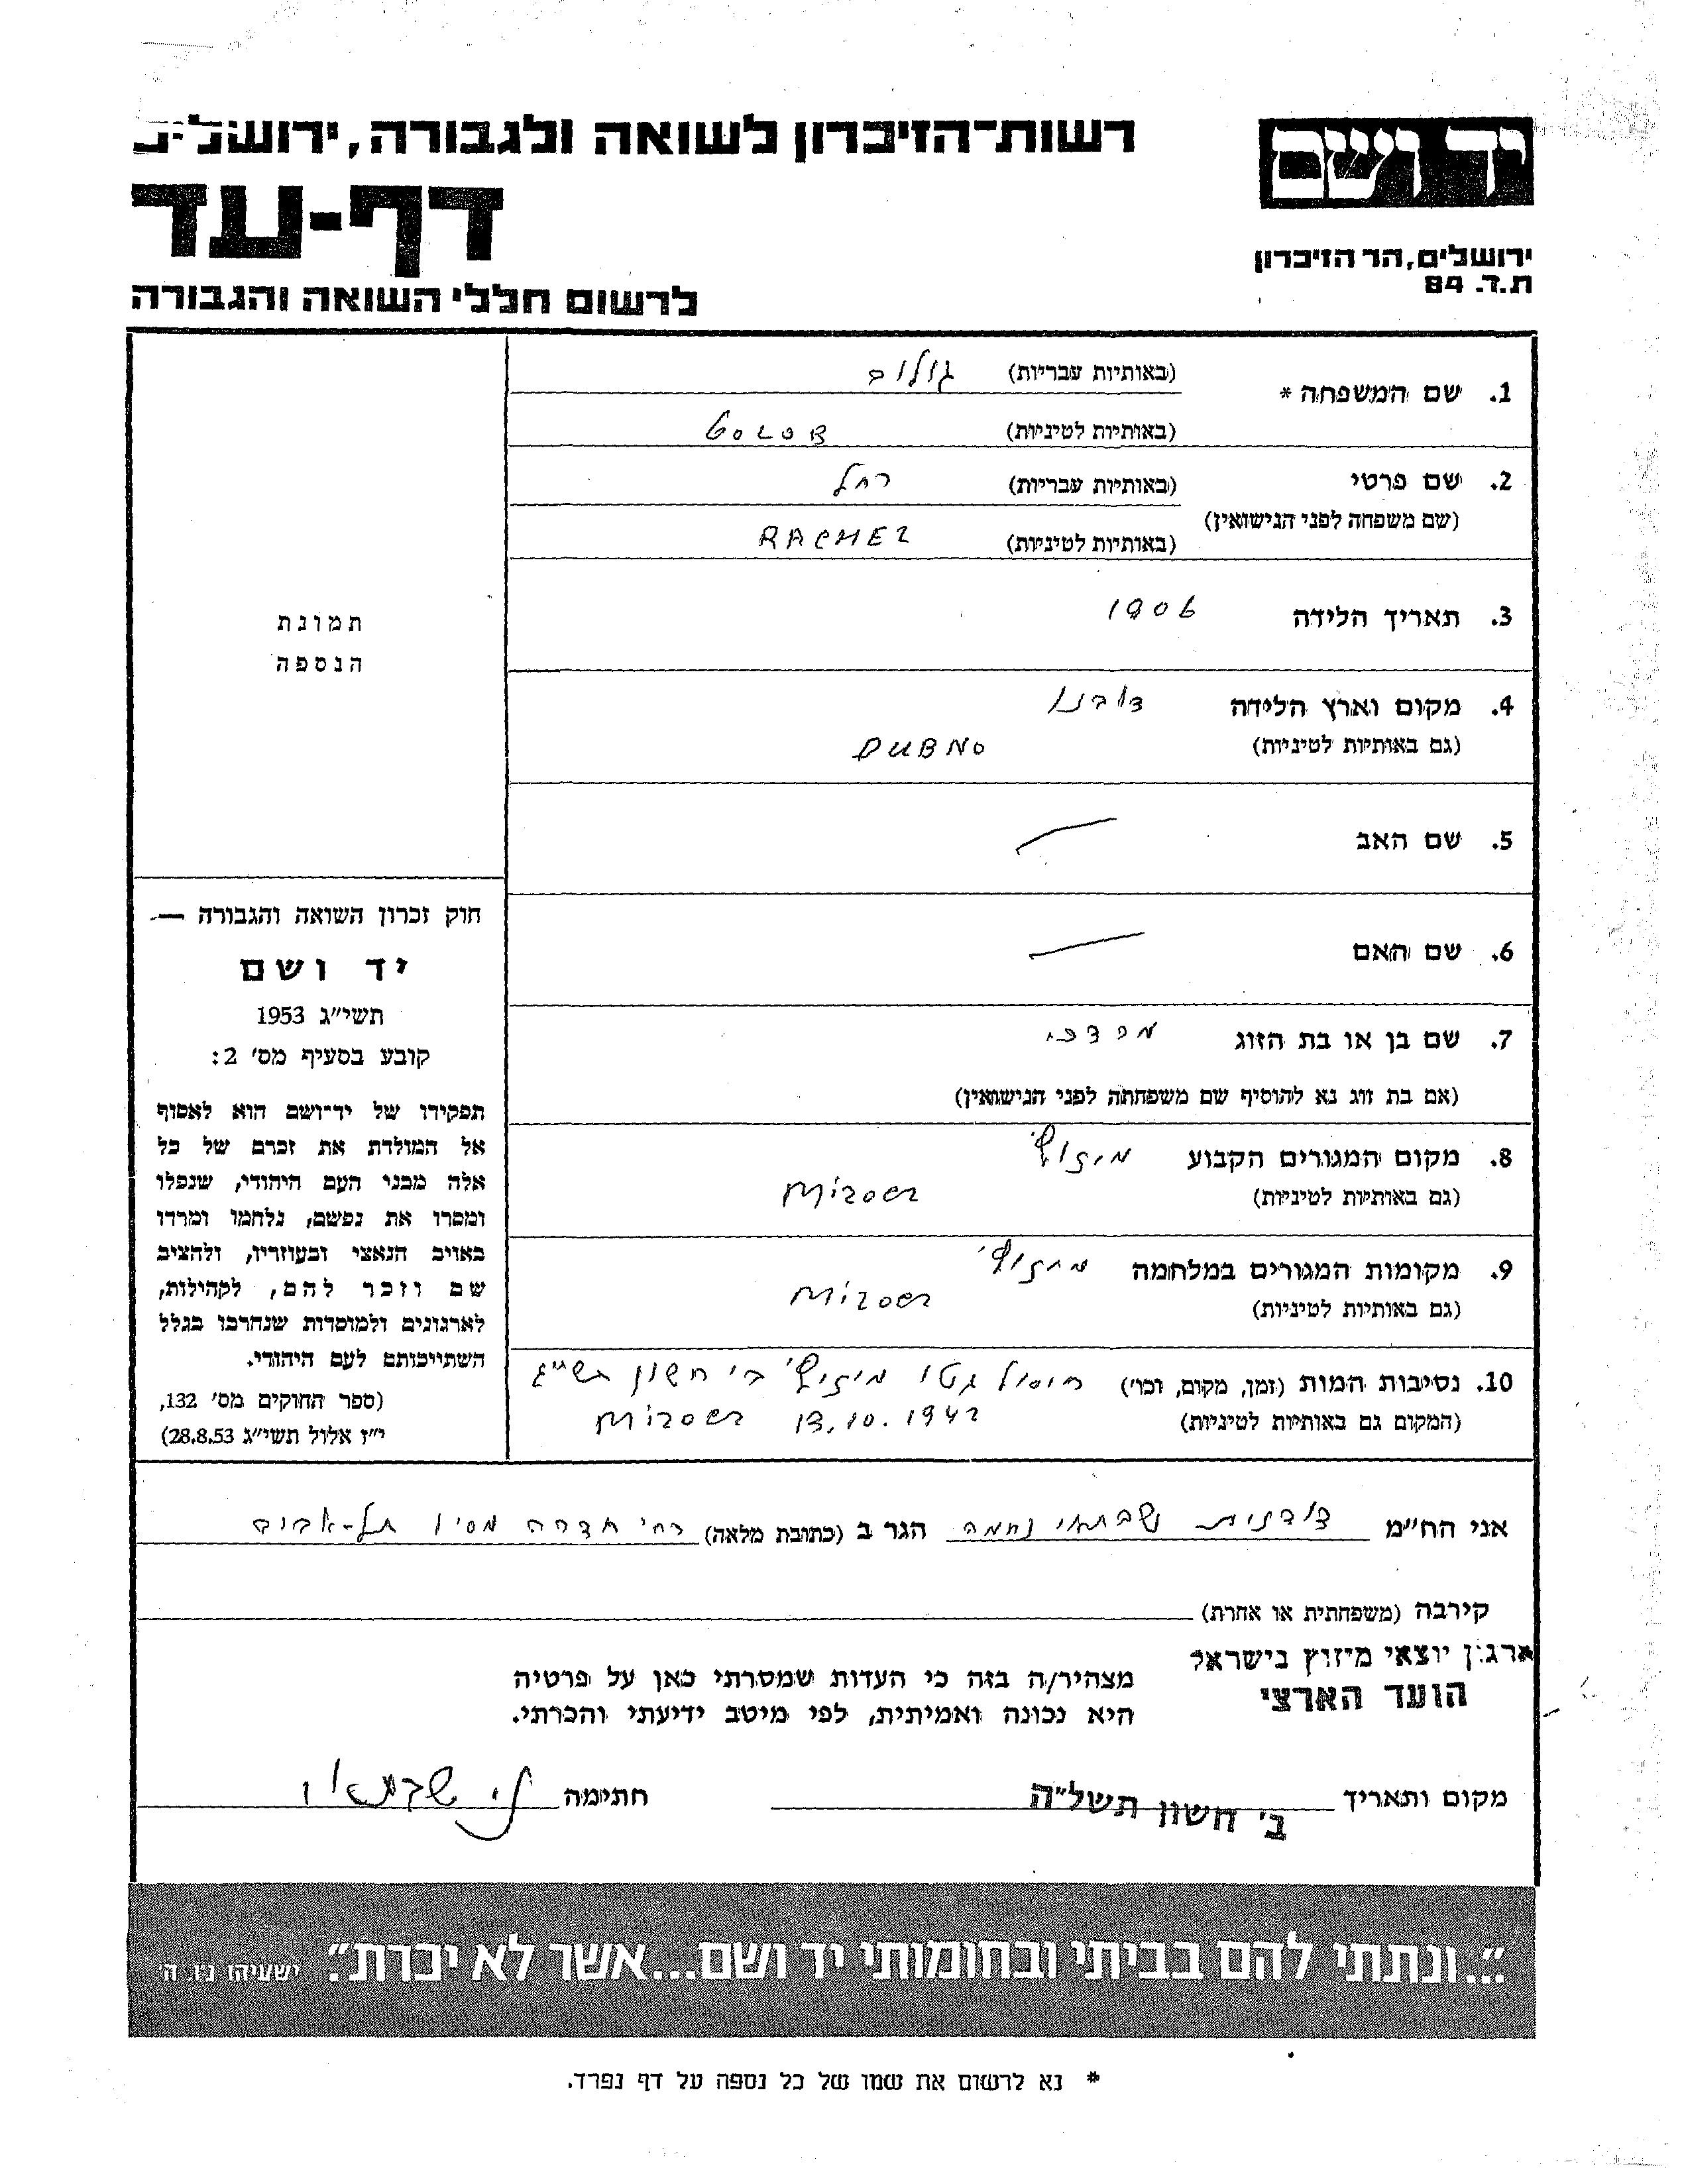 יד ושם
רשות־הזיכרון לשואה ולגבורה, ירושלים
דף-עד
ירושלים, הר הזיכרון
ת.ד. 84
לרשום חללי השואה והגבורה
1. שם המשפחה * (באותיות עבריות) גולוב
(באותיות לטיניות) GOLOB
2. שם פרטי (באותיות עבריות) רחל
(שם משפחה לפני הנישואין)
(באותיות לטיניות) RACHEL
3. תאריך הלידה 1906
4. מקום וארץ הלידה דובנו
(גם באותיות לטיניות) DUBNO
5. שם האב
6. שם האם
7. שם בן או בת הזוג מרדכי
(אם בת זוג נא להוסיף שם משפחתה לפני הנישואין)
8. מקום המגורים הקבוע מיזוץ'
(גם באותיות לטיניות) Mizocz
9. מקומות המגורים במלחמה מיזוץ'
(גם באותיות לטיניות) Mizocz
10. נסיבות המות (זמן, מקום, וכו') חיסול גטו מיזוץ' ב' חשון תש"ג
(המקום גם באותיות לטיניות) Mizocz 13.10.1942
תמונת
הנספה
חוק זכרון השואה והגבורה —
יד ושם
תשי"ג 1953
קובע בסעיף מס' 2:
תפקידו של יד־ושם הוא לאסוף
אל המולדת את זכרם של כל
אלה מבני העם היהודי, שנפלו
ומסרו את נפשם, נלחמו ומרדו
באויב הנאצי ובעוזריו, ולהציב
שם וזכר להם, לקהילות,
לארגונים ולמוסדות שנחרבו בגלל
השתייכותם לעם היהודי.
(ספר החוקים מס' 132,
י"ז אלול תשי"ג 28.8.53)
אני הח"מ שבתאי נחמה הגר ב (כתובת מלאה) רח' תל-אביב
קירבה (משפחתית או אחרת)
ארגון יוצאי מיזוץ בישראל
הועד הארצי
מצהיר/ה בזה כי העדות שמסרתי כאן על פרטיה
היא נכונה ואמיתית, לפי מיטב ידיעתי והכרתי.
מקום ותאריך ב' חשון תשל"ה חתימה
"...ונתתי להם בביתי ובחומותי יד ושם...אשר לא יכרת". ישעיהו נו, ה'
* נא לרשום את שמו של כל נספה על דף נפרד.